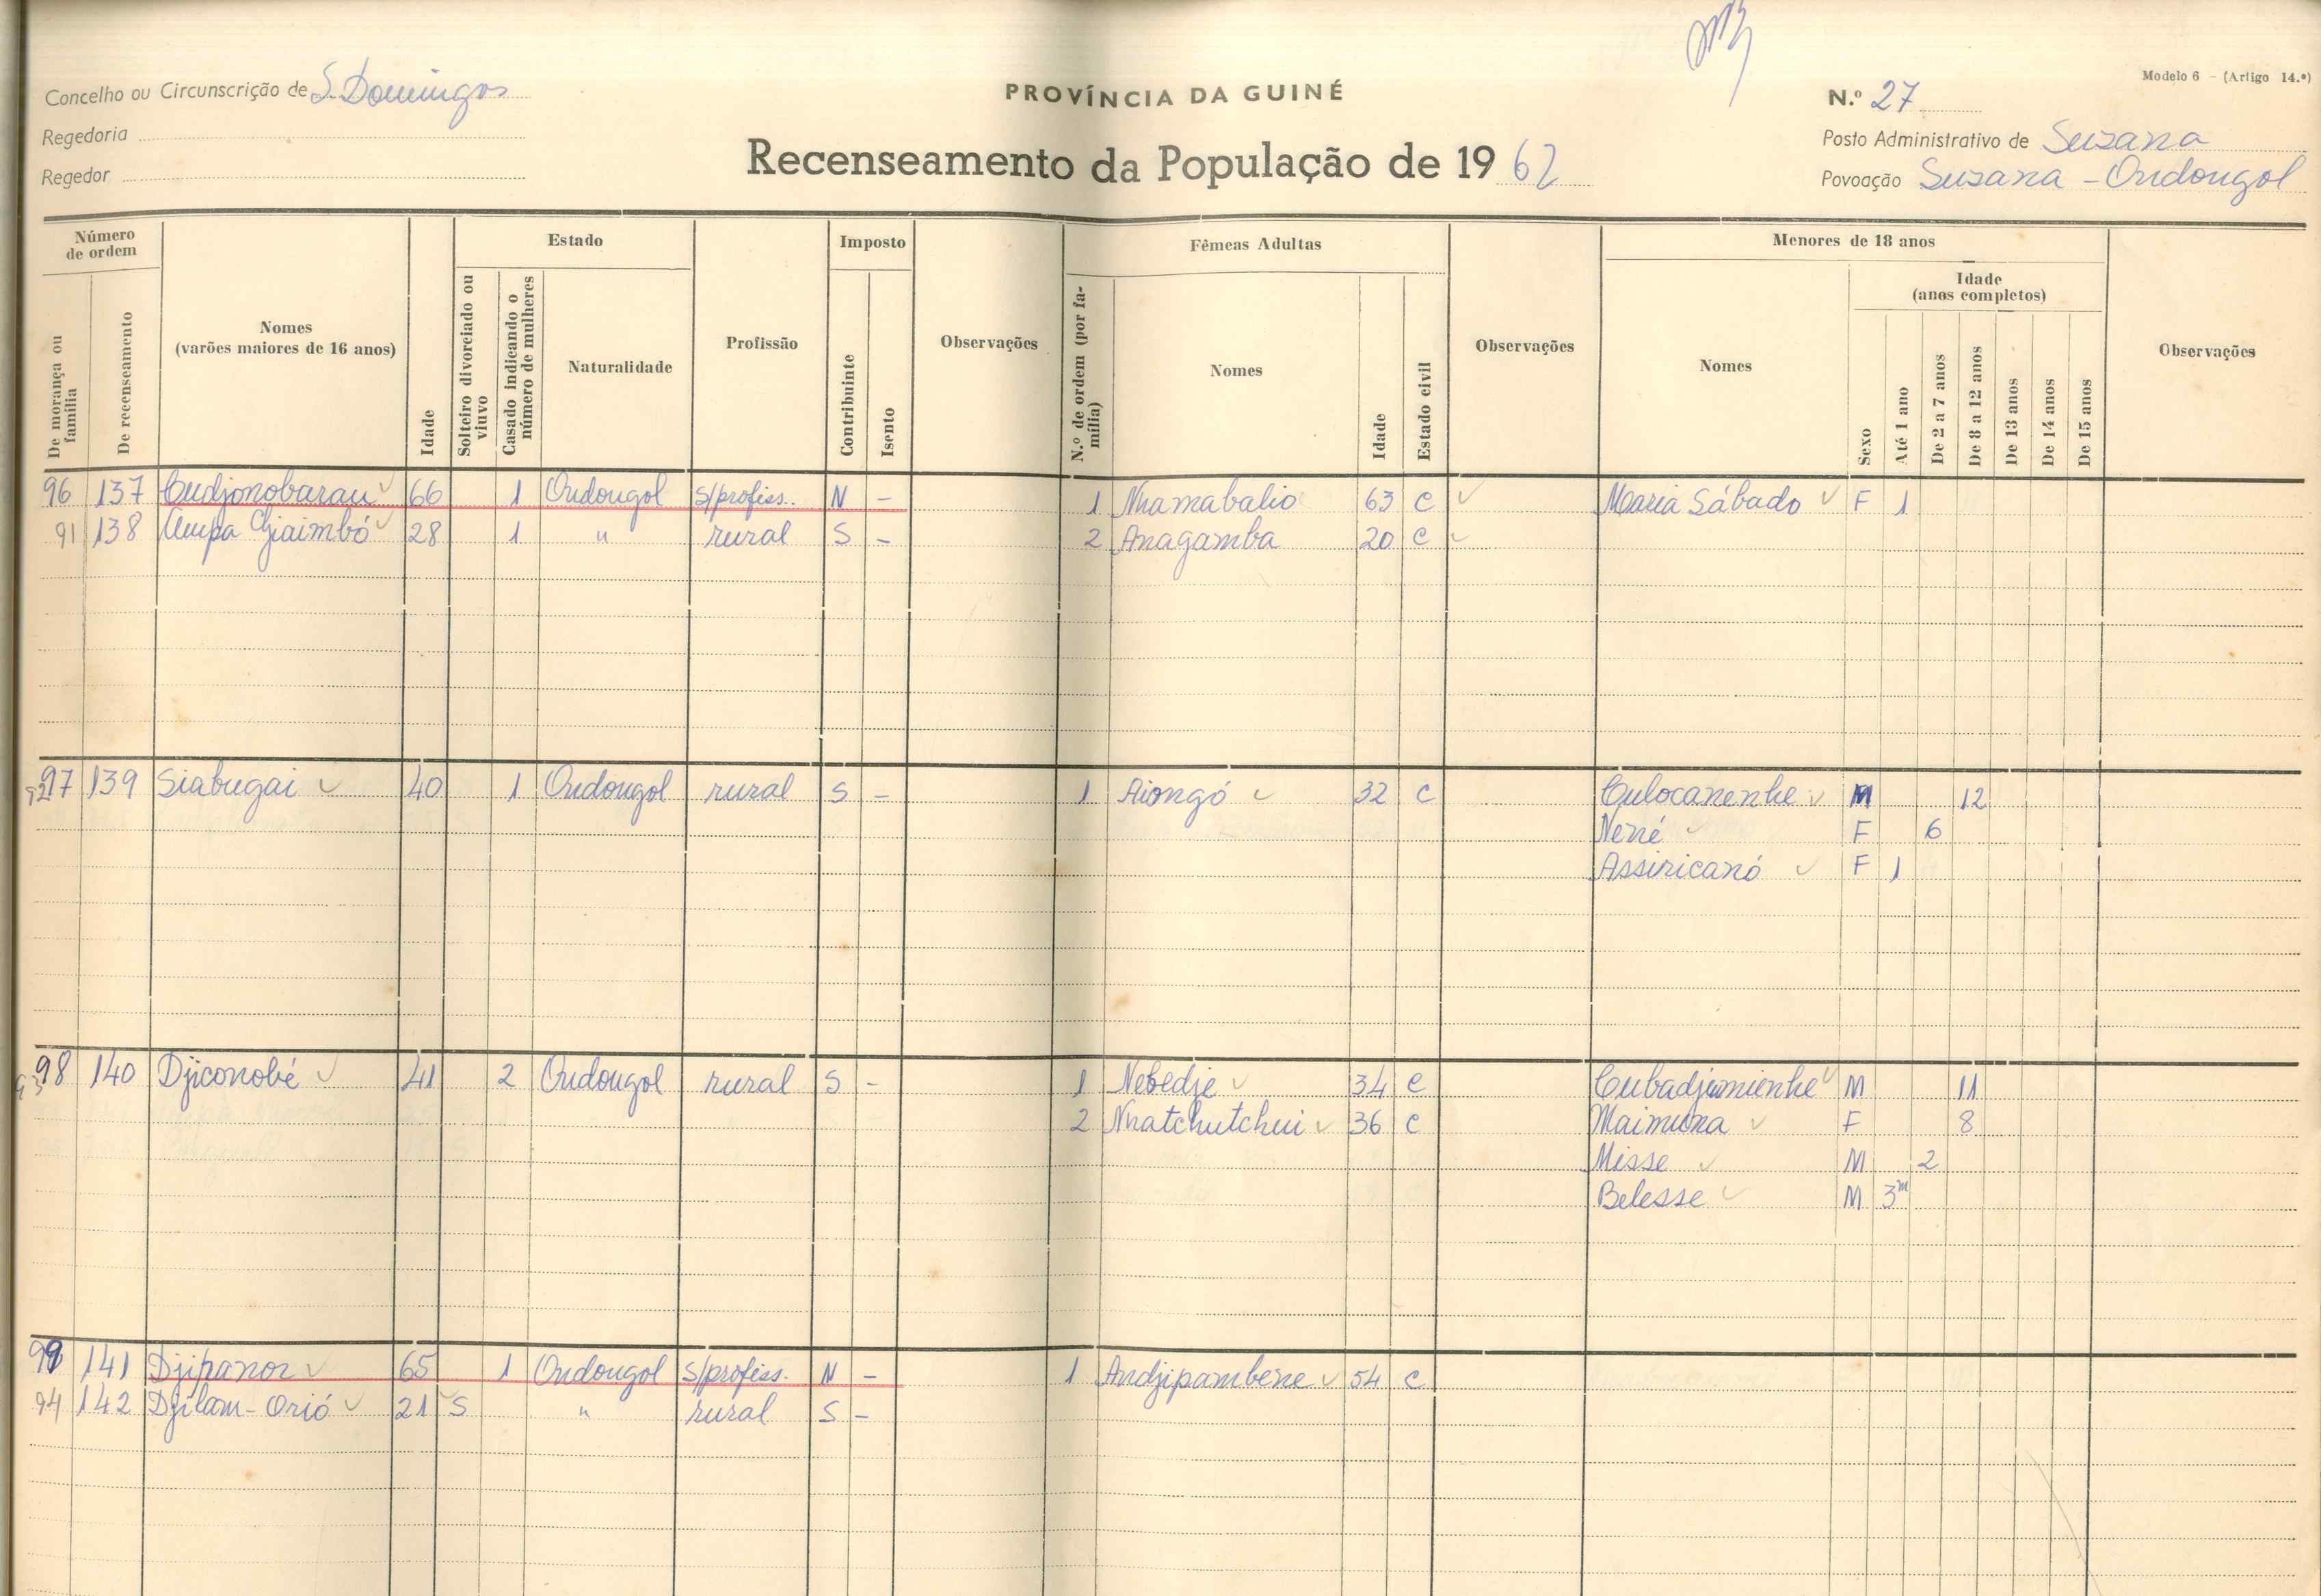 Modelo 6 - (Artigo 14.º)
Concelho ou Circunscrição de S. Domingos
PROVÍNCIA DA GUINÉ
N.º 27
Regedoria
Recenseamento da População de 1962
Posto Administrativo de Suzana
Regedor
Povoação Suzana - Ondongol
Número de ordem
Estado
Imposto
Fêmeas Adultas
Menores de 18 anos
Idade (anos completos)
De morança ou família
De recenseamento
Nomes (varões maiores de 16 anos)
Idade
Solteiro divorciado ou viuvo
Casado indicando o número de mulheres
Naturalidade
Profissão
Contribuinte
Isento
Observações
N.º de ordem (por família)
Nomes
Idade
Estado civil
Observações
Nomes
Sexo
Até 1 ano
De 2 a 7 anos
De 8 a 12 anos
De 13 anos
De 14 anos
De 15 anos
Observações
96 137 Cudjonobarau 66 1 Ondongol s/profiss. N - 1 Nhamabalio 63 C Maria Sábado F 1
91 138 28 1 " rural S - 2 Anagamba 20 C
97 139 Siabugai 40 1 Ondongol rural S - 1 Aiongó 32 C Culocanenhe M 12
92
Nené F 6
Assiricanó F 1
98 140 Djiconobé 41 2 Ondongol rural S - 1 Nebedje 34 C Cubadjamienhe M 11
93
2 Nhatchutchui 36 C Maimuna F 8
Misse M 2
Belesse M 3m
99 141 Djipanor 65 1 Ondongol s/profiss. N - 1 Andjipambene 54 C
94 142 Djilam-Orió 21 S " rural S -